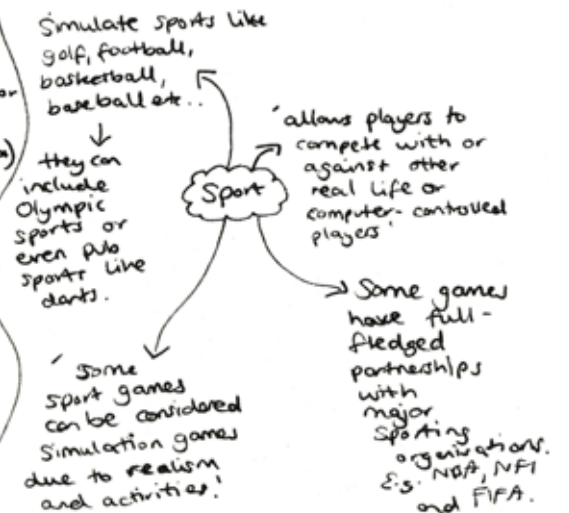 Simulate sports like
golf, football,
basketball,
baseball etc..
they can
include
Olympic
sports or
even pub
sports like
darts.
Sport
'allows players to
compete with or
against other
real life or
computer-controlled
players'
Some games
have full-
fledged
partnerships
with
major
sporting
organisations.
E.g. NBA, NFL
and FIFA.
'some
sport games
can be considered
simulation games
due to realism
and activities!
or